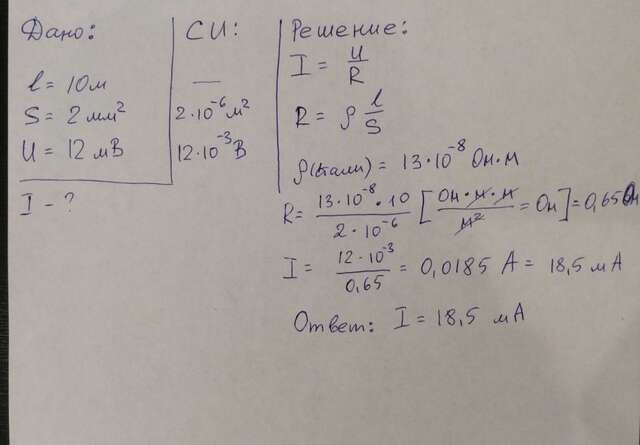 Дано:
l = 10м
S = 2 мм²
U = 12 мВ
I - ?
СИ:
—
2·10⁻⁶м²
12·10⁻³В
Решение:
I = U/R
R = ρ l/S
ρ(стали) = 13·10⁻⁸ Ом·м
R = 13·10⁻⁸·10 / 2·10⁻⁶ [Ом·м·м / м² = Ом] = 0,65 Ом
I = 12·10⁻³ / 0,65 = 0,0185 А = 18,5 мА
Ответ: I = 18,5 мА